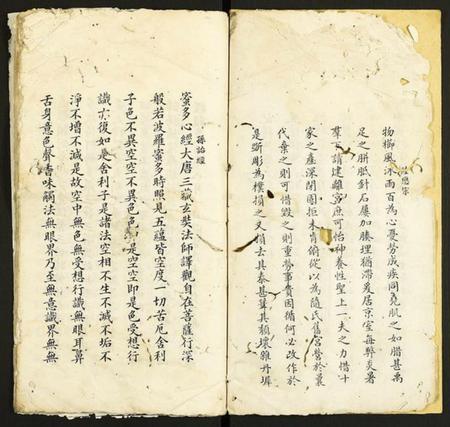 物櫛風沐雨百為心憂勞成疾同堯肌之如腊甚禹
足之胼胝針石屢加腠理猶滯爰居京室每弊炎暑
羣下請建離宮庶可怡神養性聖上一夫之力惜十
家之產深閉固拒未肯俯從以為隨氏舊宮營於曩
代棄之則可惜毀之則重勞事貴因循何必改作於
是斲彫為樸損之又損去其泰甚葺其頹壞雜丹墀
孫詒經
蜜多心經大唐三藏玄奘法師譯觀自在菩薩行深
般若波羅蜜多時照見五蘊皆空度一切苦厄舍利
子色不異空空不異色色是空空即是色受想行
識亦復如是舍利子是諸法空相不生不滅不垢不
淨不增不減是故空中無色無受想行識無眼耳鼻
舌身意色聲香味觸法無眼界乃至無意識界無無